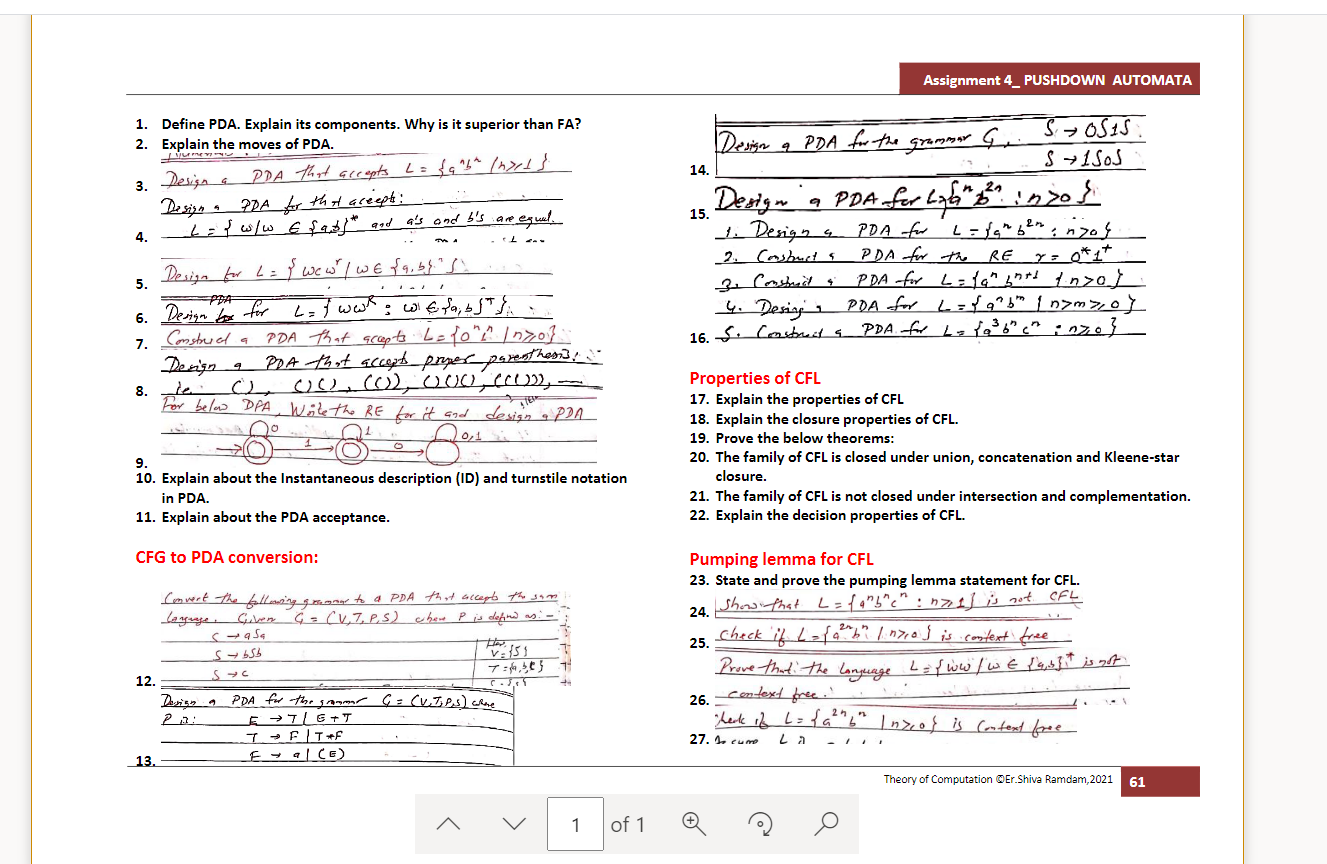 Assignment 4_ PUSHDOWN AUTOMATA
1. Define PDA. Explain its components. Why is it superior than FA?
2. Explain the moves of PDA.
3. Design a PDA that accepts L = {aⁿbⁿ | n≥1}
Design a PDA for that accept:
4. L = {w/w ∈ {a,b}* and a's and b's are equal.
5. Design for L = {wcwʳ | w∈ {a,b}*}
6. Design PDA for L = {wwᴿ : w ∈ {a,b}⁺}
7. Construct a PDA that accepts L = {0ⁿ1ⁿ | n≥0}
Design a PDA that accepts proper parenthesis:
8. ie. (), ()(), (()), ()()(), ((())),
For below DFA, Write the RE for it and design a PDA
0 1 0,1
1 0
9.
10. Explain about the Instantaneous description (ID) and turnstile notation
in PDA.
11. Explain about the PDA acceptance.
CFG to PDA conversion:
Convert the following grammar to a PDA that accepts the same
language. Given G = (V,T,P,S) where P is defined as:-
S → aSa
S → bSb V = {S}
S → c
12.
Design a PDA for the grammar G = (V,T,P,S) where
P is: E → T | E+T
T → F | T*F
13. F → a | (E)
Design a PDA for the grammar G, S → 0S1S
14. S → 1S0S
15. Design a PDA for L={aⁿb²ⁿ : n>0}
1. Design a PDA for L = {aⁿb²ⁿ : n>0}
2. Construct a PDA for the RE r = 0*1⁺
3. Construct a PDA for L = {aⁿbⁿ⁺¹ | n>0}
4. Design a PDA for L = {aⁿbᵐ | n>m≥0}
16. 5. Construct a PDA for L = {a³bⁿcⁿ : n≥0}
Properties of CFL
17. Explain the properties of CFL
18. Explain the closure properties of CFL.
19. Prove the below theorems:
20. The family of CFL is closed under union, concatenation and Kleene-star
closure.
21. The family of CFL is not closed under intersection and complementation.
22. Explain the decision properties of CFL.
Pumping lemma for CFL
23. State and prove the pumping lemma statement for CFL.
24. Show that L = {aⁿbⁿcⁿ : n≥1} is not CFL
25. Check if L = {a²ⁿbⁿ | n≥0} is context free
Prove that: the language L = {ww | w ∈ {a,b}* is not
26. context free.
27. Check if L = {a²ⁿbⁿ | n≥0} is Context free
Theory of Computation ©Er.Shiva Ramdam,2021 61
1 of 1